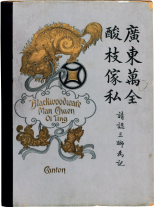 廣東萬全
酸枝傢私
請認三獅為記
Blackwoodware
Man Chuen
On Ting
Canton